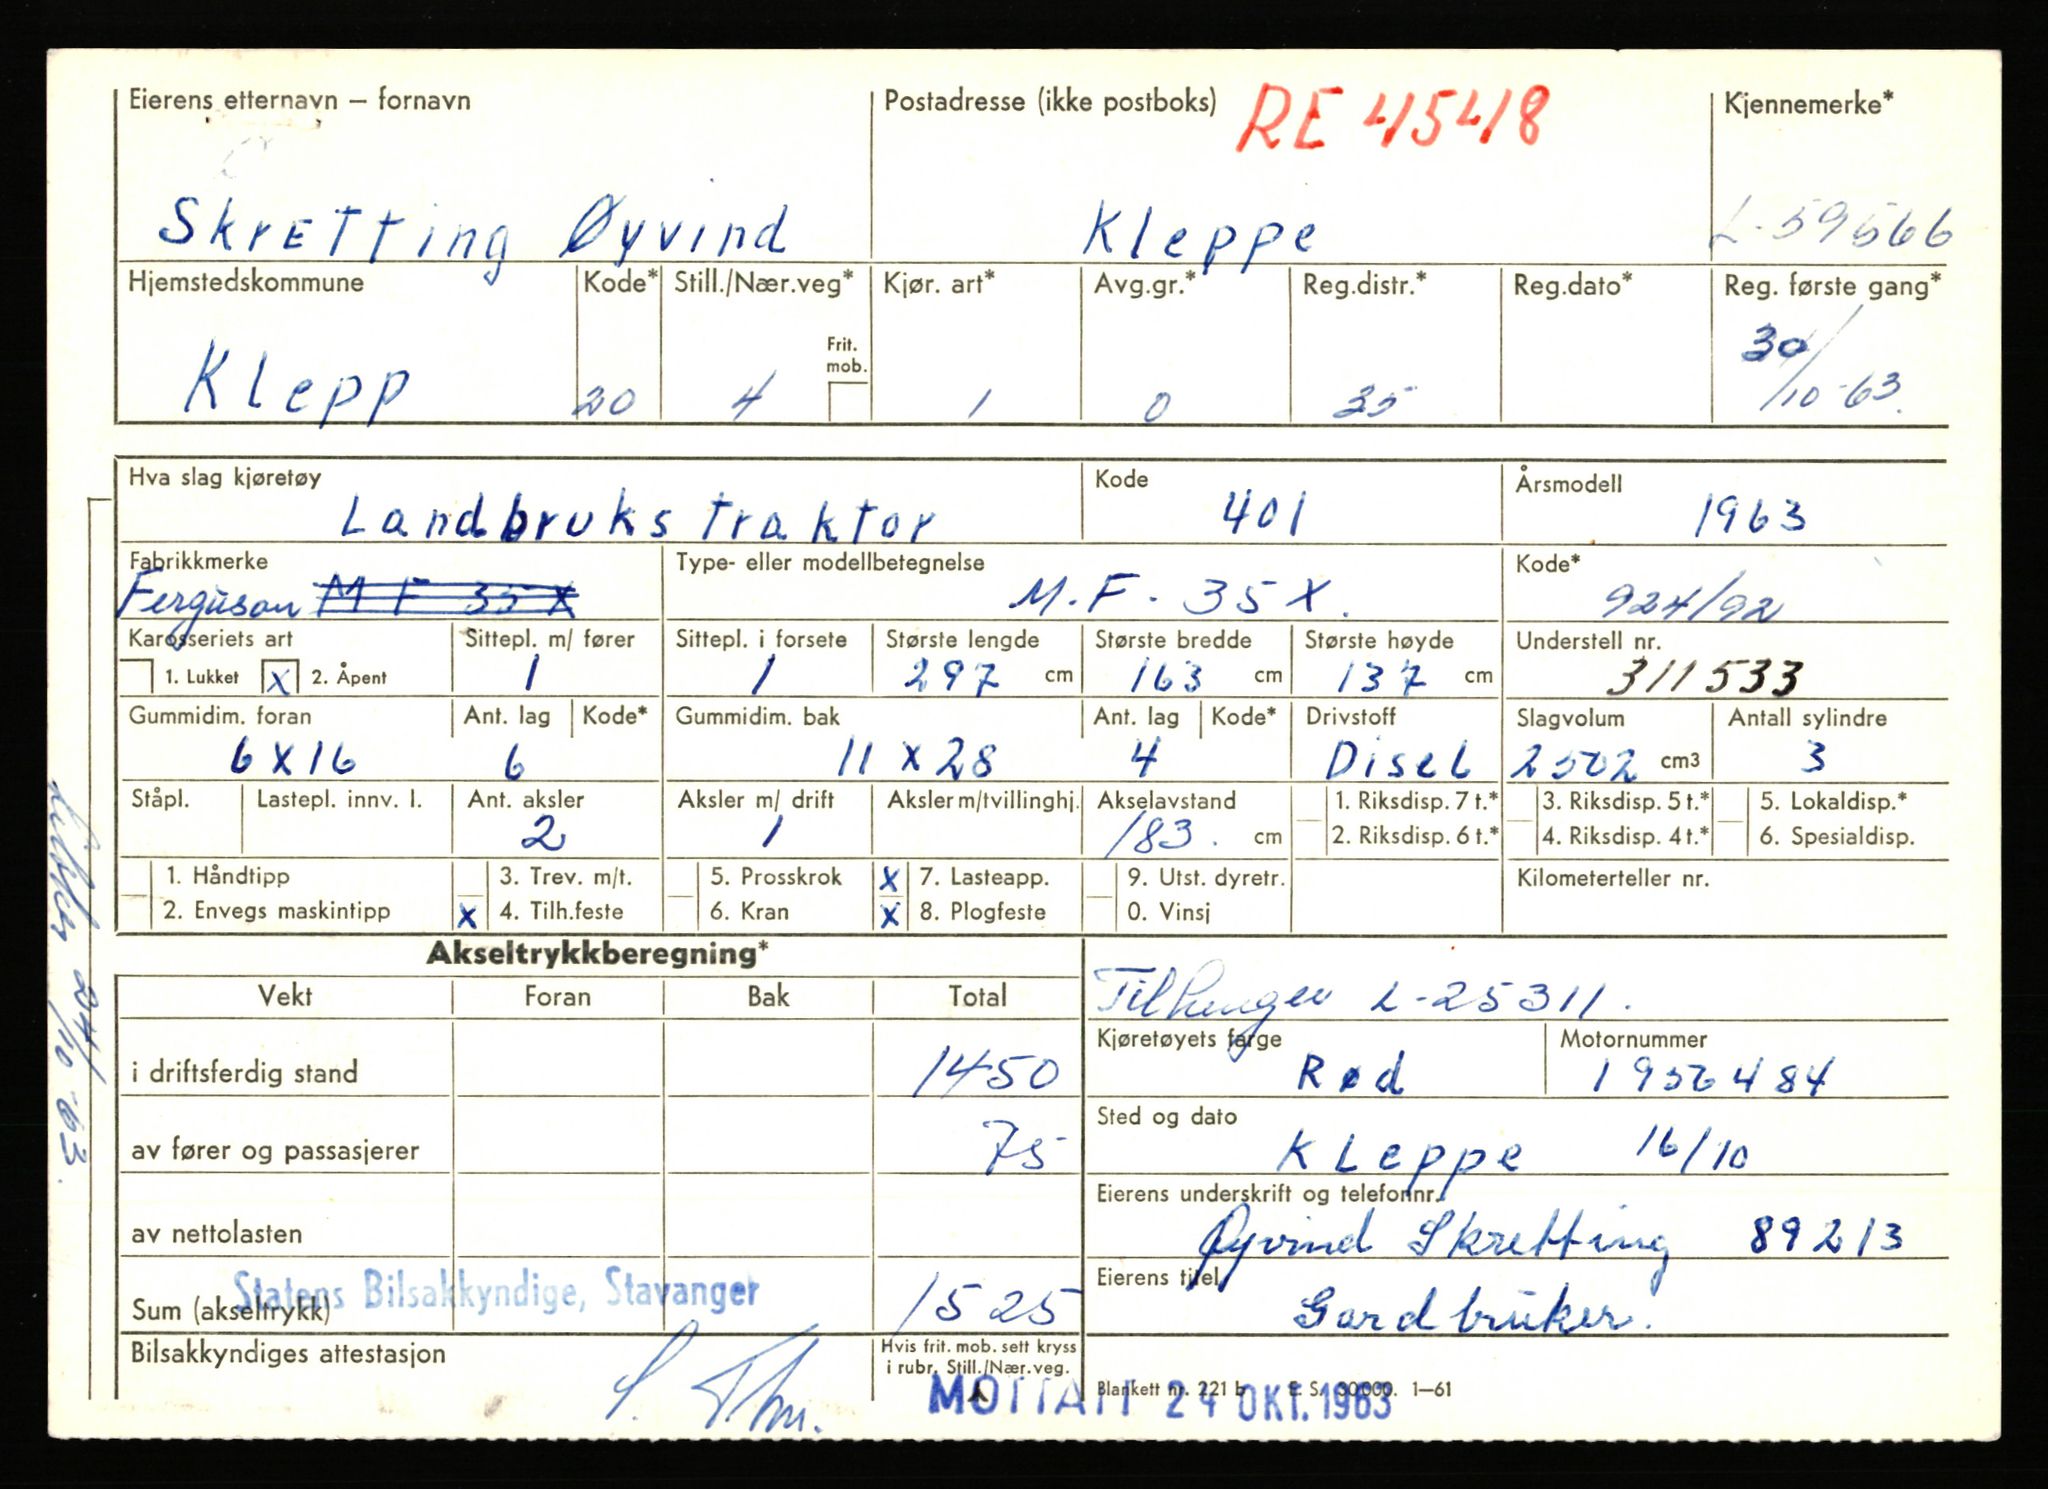 Eierens etternavn – fornavn Postadresse (ikke postboks) RE 41548 Kjennemerke*
Skretting Øyvind Kleppe L-59566
Hjemstedskommune Kode* Still./Nær.veg* Kjør. art* Avg.gr.* Reg.distr.* Reg.dato* Reg. første gang*
Frit. mob.
Klepp 20 4 1 0 35 30/10-63.
Hva slag kjøretøy Kode Årsmodell
Landbruks traktor 401 1963
Fabrikkmerke Type- eller modellbetegnelse Kode*
Ferguson M F 35 X M.F. 35 X. 924/92
Karosseriets art Sittepl. m/ fører Sittepl. i forsete Største lengde Største bredde Største høyde Understell nr.
1. Lukket X 2. Åpent 1 1 297 cm 163 cm 137 cm 311533
Gummidim. foran Ant. lag Kode* Gummidim. bak Ant. lag Kode* Drivstoff Slagvolum Antall sylindre
6 X 16 6 11 X 28 4 Disel 2502 cm3 3
Ståpl. Lastepl. innv. l. Ant. aksler Aksler m/ drift Aksler m/tvillinghj. Akselavstand 1. Riksdisp. 7 t.* 3. Riksdisp. 5 t.* 5. Lokaldisp.*
2 1 183. cm 2. Riksdisp. 6 t.* 4. Riksdisp. 4 t.* 6. Spesialdisp.
1. Håndtipp 3. Trev. m/t. 5. Prosskrok X 7. Lasteapp. 9. Utst. dyretr. Kilometerteller nr.
2. Envegs maskintipp X 4. Tilh.feste 6. Kran X 8. Plogfeste 0. Vinsj
Akseltrykkberegning*
Vekt Foran Bak Total
Tilhenger L-25311.
Kjøretøyets farge Motornummer
i driftsferdig stand 1450 Rød 1956484
Sted og dato
av fører og passasjerer 75 Kleppe 16/10
Eierens underskrift og telefonnr.
av nettolasten Øyvind Skretting 89213
Eierens titel
Statens Bilsakkyndige, Stavanger
Sum (akseltrykk) 1525 Gardbruker.
Bilsakkyndiges attestasjon Hvis frit. mob. sett kryss
i rubr. Still./Nær.veg.
Blankett nr. 221 b E. S. 30000. 1—61
MOTTATT 24 OKT. 1963
24/10-63.